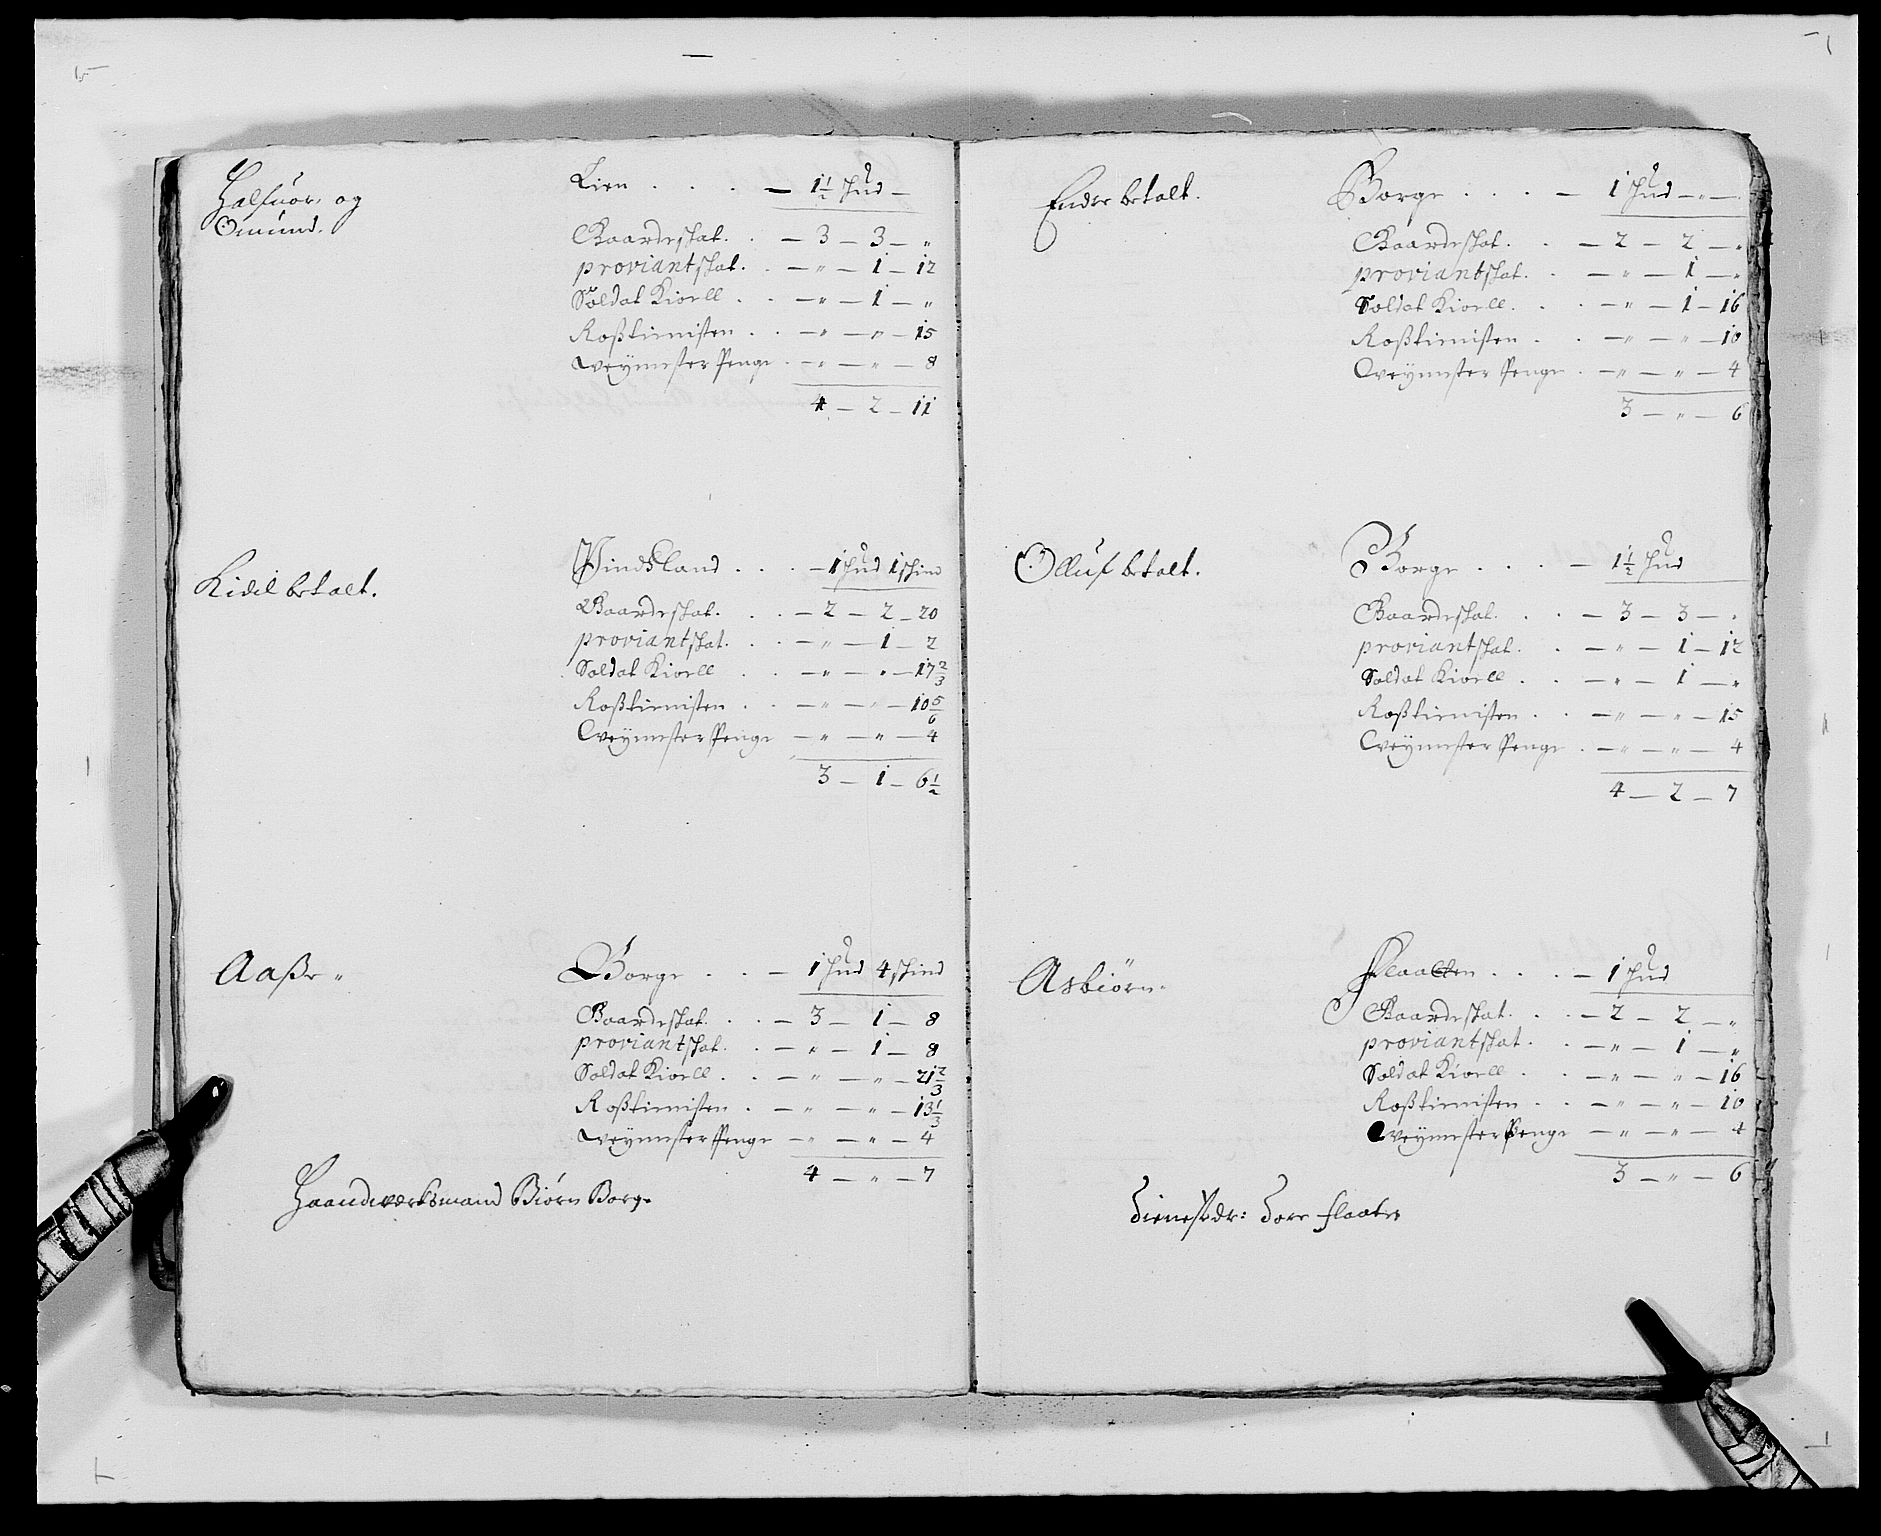 Halfuor og
Omund.
Lien . . . — 1½ Hud —
Gaardeskat. . — 3 — 3 — "
proviantskat. . — " — 1 — 12
Soldat Kioell . . — " — 1 — "
Roßtienisten . . — " — " — 15
Weÿmester Penge . — " — " — 8
4 — 2 — 11
Kidel betalt.
Vindsland . . . — 1 Hud 1 skind
Gaardeskat. . . — 2 — 2 — 20
proviantskat. . . — " — 1 — 2
Soldat Kioell . . — " — " — 17 2/3
Roßtienisten . . — " — " — 10 5/6
Weÿmester Penge — " — " — 4
3 — 1 — 6½
Aaße "
Borge . . — 1 Hud 4 skind
Gaardeskat. . . — 3 — 1 — 8
proviantskat. . . — " — 1 — 8
Soldat Kioell . . — " — " — 21 2/3
Roßtienisten . — " — " — 13 1/3
Weÿmester Penge — " — " — 4
4 — " — 7
Haandwerksmand Biørn Borge
Endre betalt.
Borge . . . — 1 Hud — " —
Gaardeskat. . . — 2 — 2 — "
proviantskat. . . — " — 1 — "
Soldat Kioell. . . — " — 1 — 16
Roßtienisten . . — " — " — 10
Weÿmester Penge . — " — " — 4
3 — " — 6
Olluf betalt.
Borge . . . . — 1½ Hud
Gaardeskat. . . — 3 — 3 — "
proviantskat. . — " — 1 — 12
Soldat Kioell . . — " — 1 — "
Roßtienisten . . — " — " — 15
Weÿmester Penge . — " — " — 4
4 — 2 — 7
Asbiørn "
Flaatten . . . — 1 Hud
Gaardeskat. . . — 2 — 2 — "
proviantskat. . . — " — 1 — "
Soldat Kioell . . — " — " — 16
Roßtienisten . . — " — " — 10
Weÿmester Penge — " — " — 4
3 — " — 6
Tore flaaten